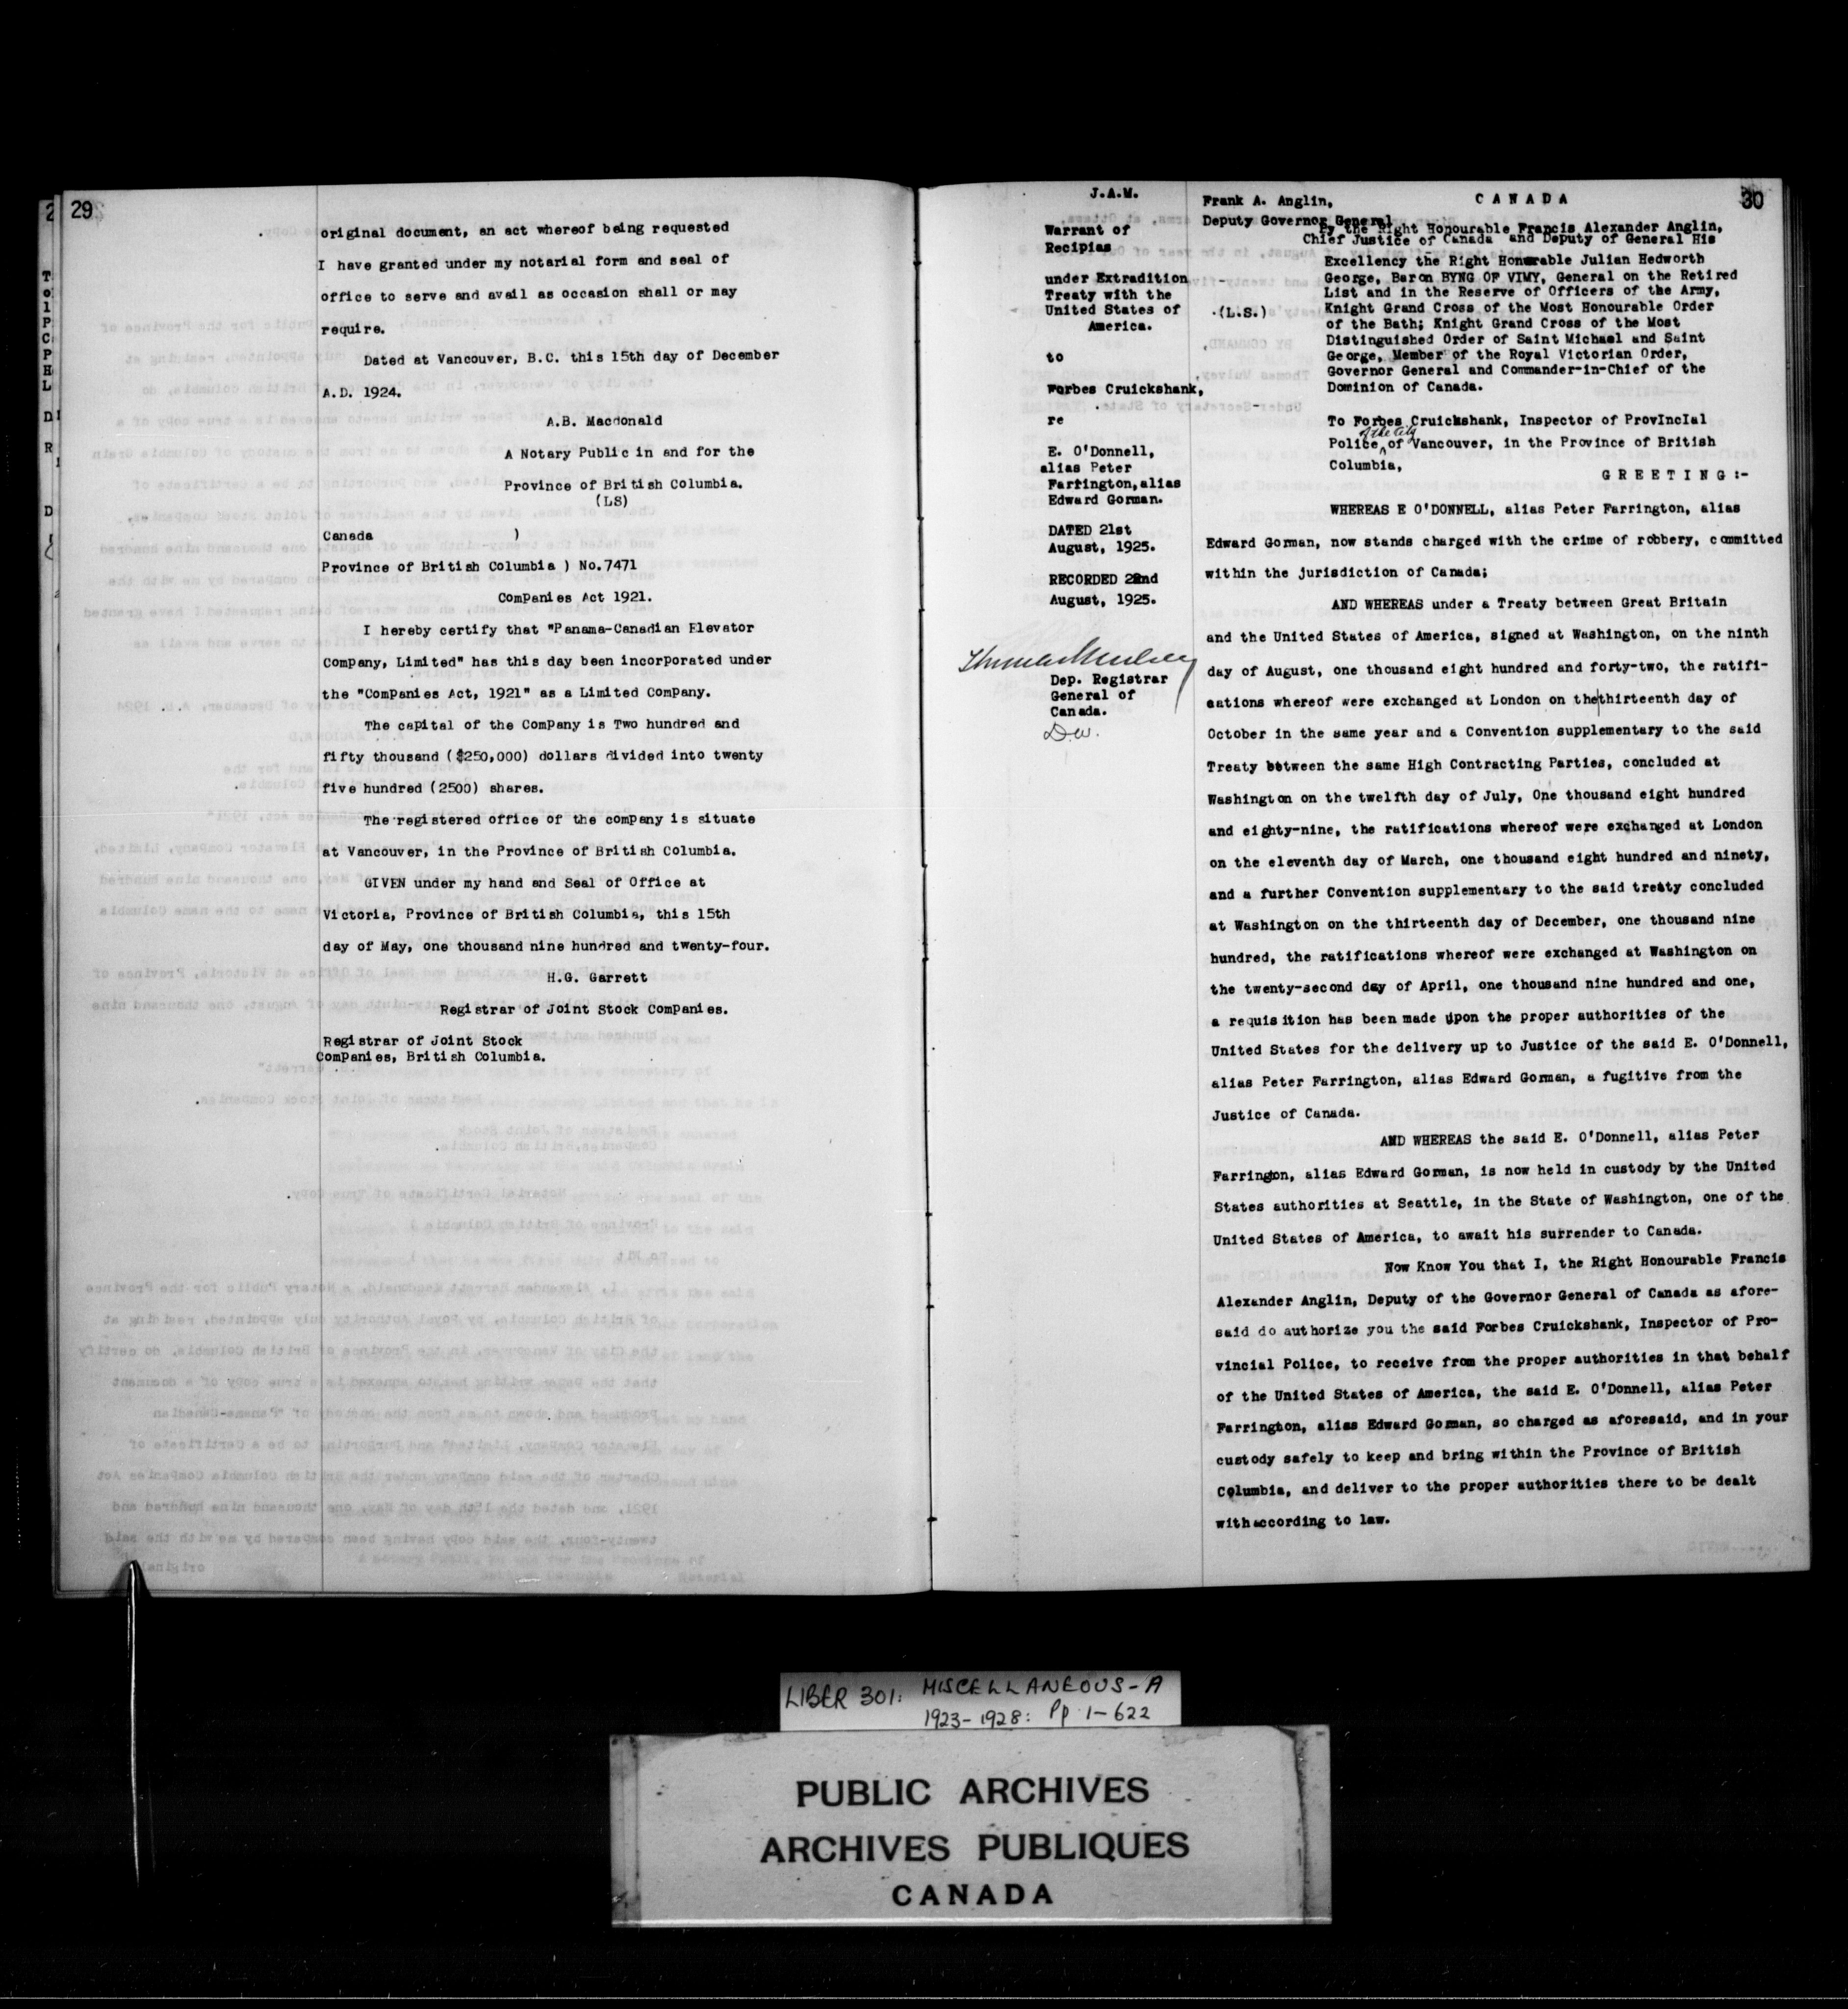 29
original document, an act whereof being requested
I have granted under my notarial form and seal of
office to serve and avail as occasion shall or may
require.
Dated at Vancouver, B.C. this 15th day of December
A.D. 1924.
A.B. Macdonald
A Notary Public in and for the
Province of British Columbia.
(LS)
Canada )
Province of British Columbia ) No.7471
Companies Act 1921.
I hereby certify that "Panama-Canadian Elevator
Company, Limited" has this day been incorporated under
the "Companies Act, 1921" as a Limited Company.
The capital of the Company is Two hundred and
fifty thousand ($250,000) dollars divided into twenty
five hundred (2500) shares.
The registered office of the company is situate
at Vancouver, in the Province of British Columbia.
GIVEN under my hand and Seal of Office at
Victoria, Province of British Columbia, this 15th
day of May, one thousand nine hundred and twenty-four.
H.G. Garrett
Registrar of Joint Stock Companies.
Registrar of Joint Stock
Companies, British Columbia.
30
J.A.M.
Warrant of
Recipias
under Extradition
Treaty with the
United States of
America.
to
Forbes Cruickshank,
re
E. O'Donnell,
alias Peter
Farrington, alias
Edward Gorman.
DATED 21st
August, 1925.
RECORDED 22nd
August, 1925.
Dep. Registrar
General of
Canada.
Frank A. Anglin,
Deputy Governor General
(L.S.)
CANADA
By the Right Honourable Francis Alexander Anglin,
Chief Justice of Canada and Deputy of General His
Excellency the Right Honorable Julian Hedworth
George, Baron BYNG OF VIMY, General on the Retired
List and in the Reserve of Officers of the Army,
Knight Grand Cross of the Most Honourable Order
of the Bath; Knight Grand Cross of the Most
Distinguished Order of Saint Michael and Saint
George, Member of the Royal Victorian Order,
Governor General and Commander-in-Chief of the
Dominion of Canada.
To Forbes Cruickshank, Inspector of ProvIncIal
Police of the City of Vancouver, in the Province of British
Columbia,
GREETING:-
WHEREAS E O'DONNELL, alias Peter Farrington, alias
Edward Gorman, now stands charged with the crime of robbery, committed
within the jurisdiction of Canada;
AND WHEREAS under a Treaty between Great Britain
and the United States of America, signed at Washington, on the ninth
day of August, one thousand eight hundred and forty-two, the ratifi-
cations whereof were exchanged at London on the thirteenth day of
October in the same year and a Convention supplementary to the said
Treaty between the same High Contracting Parties, concluded at
Washington on the twelfth day of July, One thousand eight hundred
and eighty-nine, the ratifications whereof were exchanged at London
on the eleventh day of March, one thousand eight hundred and ninety,
and a further Convention supplementary to the said treaty concluded
at Washington on the thirteenth day of December, one thousand nine
hundred, the ratifications whereof were exchanged at Washington on
the twenty-second day of April, one thousand nine hundred and one,
a requisition has been made upon the proper authorities of the
United States for the delivery up to Justice of the said E. O'Donnell,
alias Peter Farrington, alias Edward Gorman, a fugitive from the
Justice of Canada.
AND WHEREAS the said E. O'Donnell, alias Peter
Farrington, alias Edward Gorman, is now held in custody by the United
States authorities at Seattle, in the State of Washington, one of the
United States of America, to await his surrender to Canada.
Now Know You that I, the Right Honourable Francis
Alexander Anglin, Deputy of the Governor General of Canada as afore-
said do authorize you the said Forbes Cruickshank, Inspector of Pro-
vincial Police, to receive from the proper authorities in that behalf
of the United States of America, the said E. O'Donnell, alias Peter
Farrington, alias Edward Gorman, so charged as aforesaid, and in your
custody safely to keep and bring within the Province of British
Columbia, and deliver to the proper authorities there to be dealt
with according to law.
LIBER 301: MISCELLANEOUS-A
1923-1928: Pp 1-622
PUBLIC ARCHIVES
ARCHIVES PUBLIQUES
CANADA